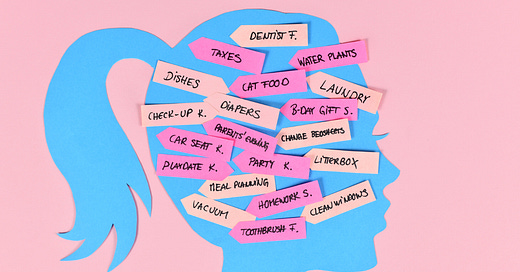 DENTIST F.
TAXES
WATER PLANTS
DISHES
CAT FOOD
LAUNDRY
CHECK-UP K.
DIAPERS
B-DAY GIFT S.
PARENTS' EVENING
CHANGE BEDSHEETS
CAR SEAT K.
PLAYDATE K.
PARTY K.
LITTERBOX
MEAL PLANNING
VACUUM
HOMEWORK S.
CLEAN WINDOWS
TOOTHBRUSH F.